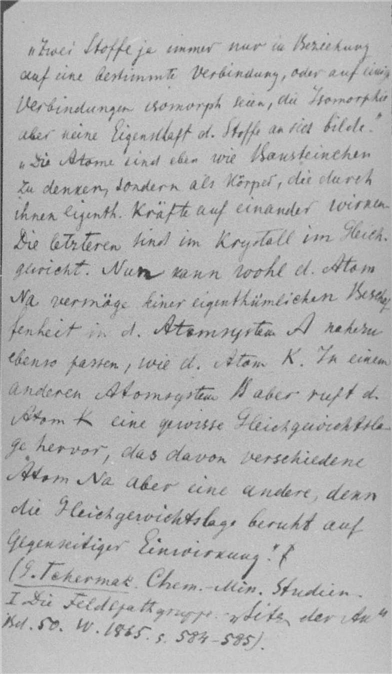 „Zwei Stoffe ja immer nur in Beziehung
auf eine bestimmte Verbindung, oder auf einige
Verbindungen isomorph seien, die Isomorphie
aber keine Eigenschaft d. Stoffe an sich bilde."
„Die Atome sind eben wie Bausteinchen
zu denken, sondern als Körper, die durch
ihnen eigenth. Kräfte auf einander wirken.
Die letzteren sind im Krystall im Gleich-
gewicht. Nun kann wohl d. Atom
Na vermöge seiner eigenthümlichen Beschaf-
fenheit in d. Atomsystem A nahezu
ebenso passen, wie d. Atom K. In einem
anderen Atomsystem B aber ruft d.
Atom K eine gewisse Gleichgewichtsla-
ge hervor, das davon verschiedene
Atom Na aber eine andere, denn
die Gleichgewichtslage beruht auf
gegenseitiger Einwirkung."
(G. Tschermak. Chem.-Min. Studien.
I Die Feldspathgruppe. „Sitz. der Ak"
Bd. 50. W. 1865. s. 584-585).